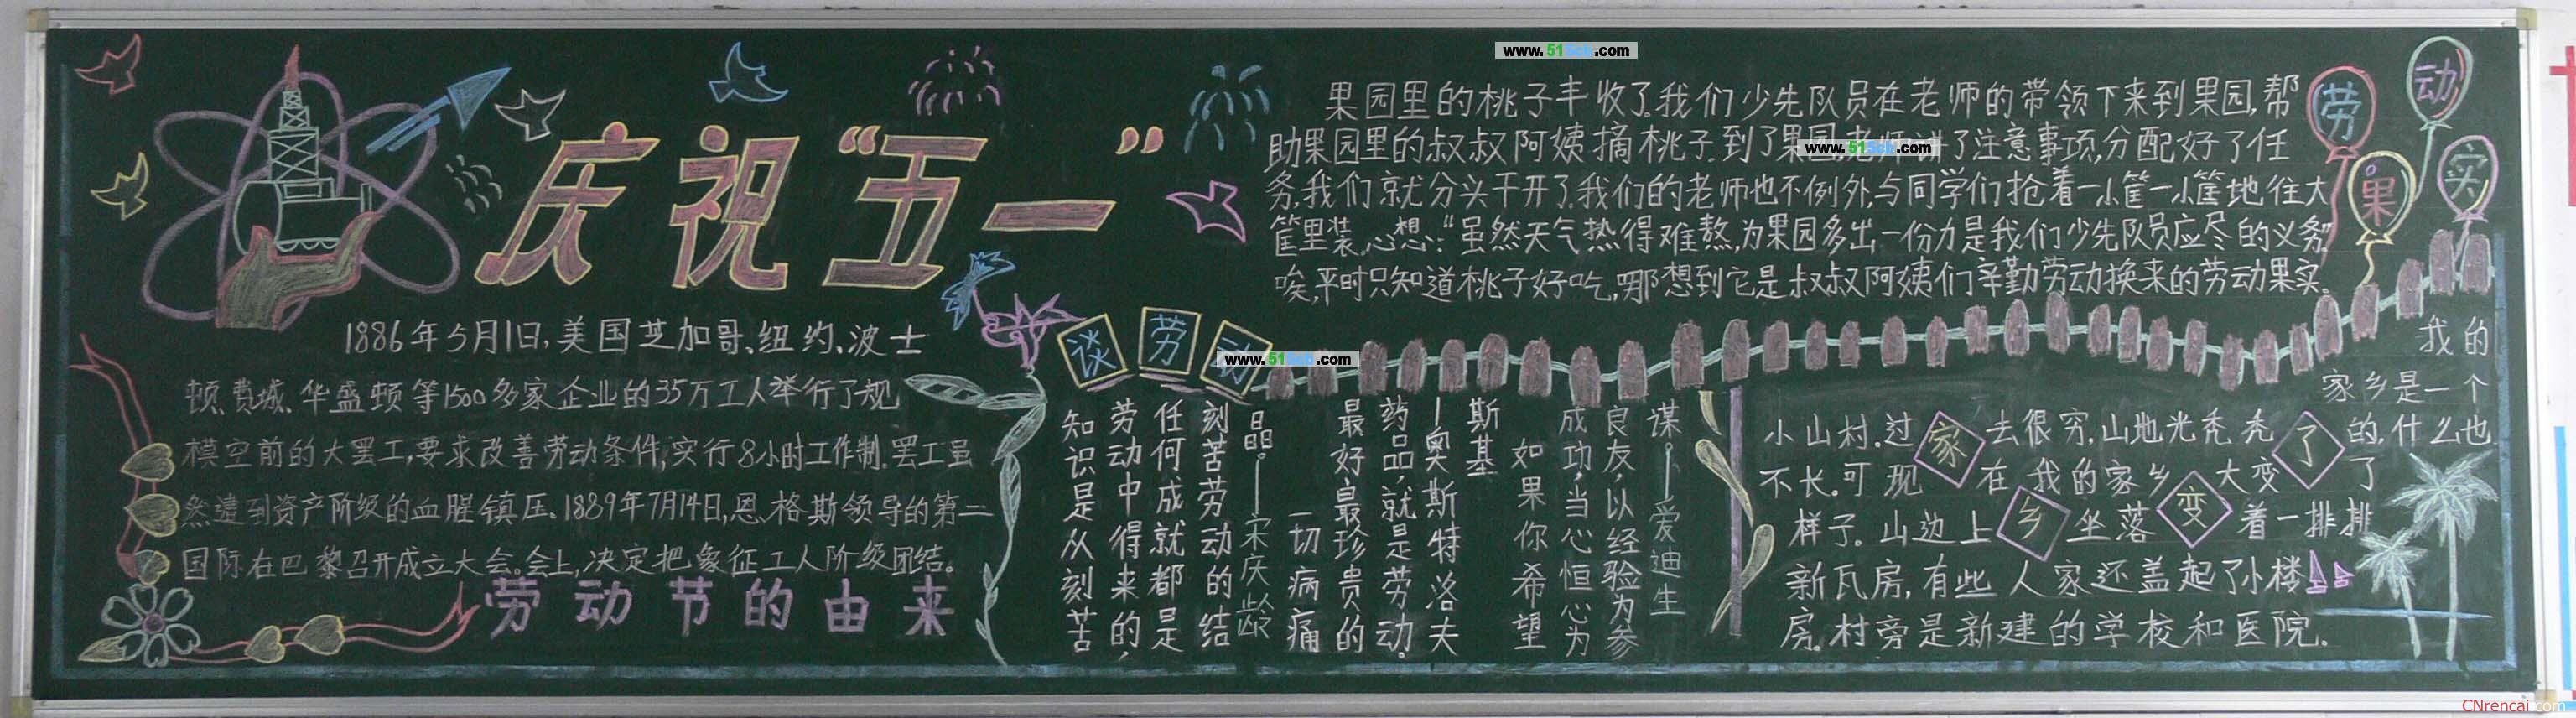 庆祝“五一”
1886年5月1日,美国芝加哥、纽约、波士
顿、费城、华盛顿等1500多家企业的35万工人举行了规
模空前的大罢工,要求改善劳动条件,实行8小时工作制.罢工虽
然遭到资产阶级的血腥镇压.1889年7月14日,恩.格斯领导的第二
国际在巴黎召开成立大会。会上,决定把象征工人阶级团结。
劳动节的由来
劳动果实
果园里的桃子丰收了.我们少先队员在老师的带领下来到果园,帮
助果园里的叔叔阿姨摘桃子.到了果园,老师讲了注意事项,分配好了任
务,我们就分头干开了.我们的老师也不例外,与同学们抢着一小筐一小筐地往大
筐里装.心想:“虽然天气热得难熬,为果园多出一份力是我们少先队员应尽的义务”
唉,平时只知道桃子好吃,哪想到它是叔叔阿姨们辛勤劳动换来的劳动果实.
谈劳动
知识是从刻苦
劳动中得来的,
任何成就都是
刻苦劳动的结
晶.——宋庆龄
一切病痛
最好最珍贵的
药品,就是劳动.
—奥斯特洛夫
斯基
如果你希望
成功,当心恒心为
良友,以经验为参
谋—爱迪生
家乡变了
我的
家乡是一个
小山村.过去很穷,山地光秃秃的,什么也
不长.可现在我的家乡大变了
样子.山边上坐落着一排排
新瓦房,有些人家还盖起了小楼
房.村旁是新建的学校和医院.
www.515cb.com
www.515cb.com
www.515cb.com
CNrencai.com